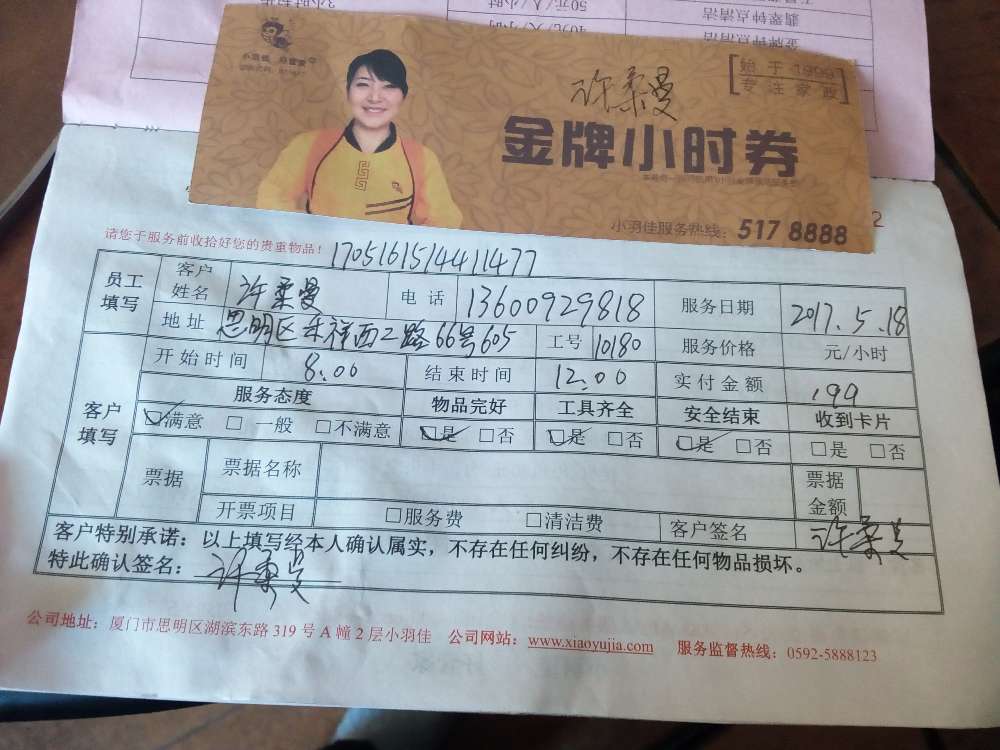 3小时起步
50元/人/小时
翡翠钟点清洁
40元/人/小时
金牌钟点清洁
始于1999
专注家政
许柔曼
金牌小时券
小羽佳服务热线：517 8888
请您于服务前收拾好您的贵重物品！1705161514411477
员工填写 客户姓名 许柔曼 电话 13600929818 服务日期 2017.5.18
地址 思明区禾祥西二路66号605 工号 10180 服务价格 元/小时
开始时间 8:00 结束时间 12:00 实付金额 199
客户填写 服务态度 物品完好 工具齐全 安全结束 收到卡片
☑满意 □一般 □不满意 ☑是 □否 ☑是 □否 ☑是 □否 □是 □否
票据 票据名称 票据金额
开票项目 □服务费 □清洁费 客户签名 许柔曼
客户特别承诺：以上填写经本人确认属实，不存在任何纠纷，不存在任何物品损坏。
特此确认签名：许柔曼
公司地址：厦门市思明区湖滨东路 319 号 A 幢 2 层小羽佳 公司网站：www.xiaoyujia.com 服务监督热线：0592-5888123